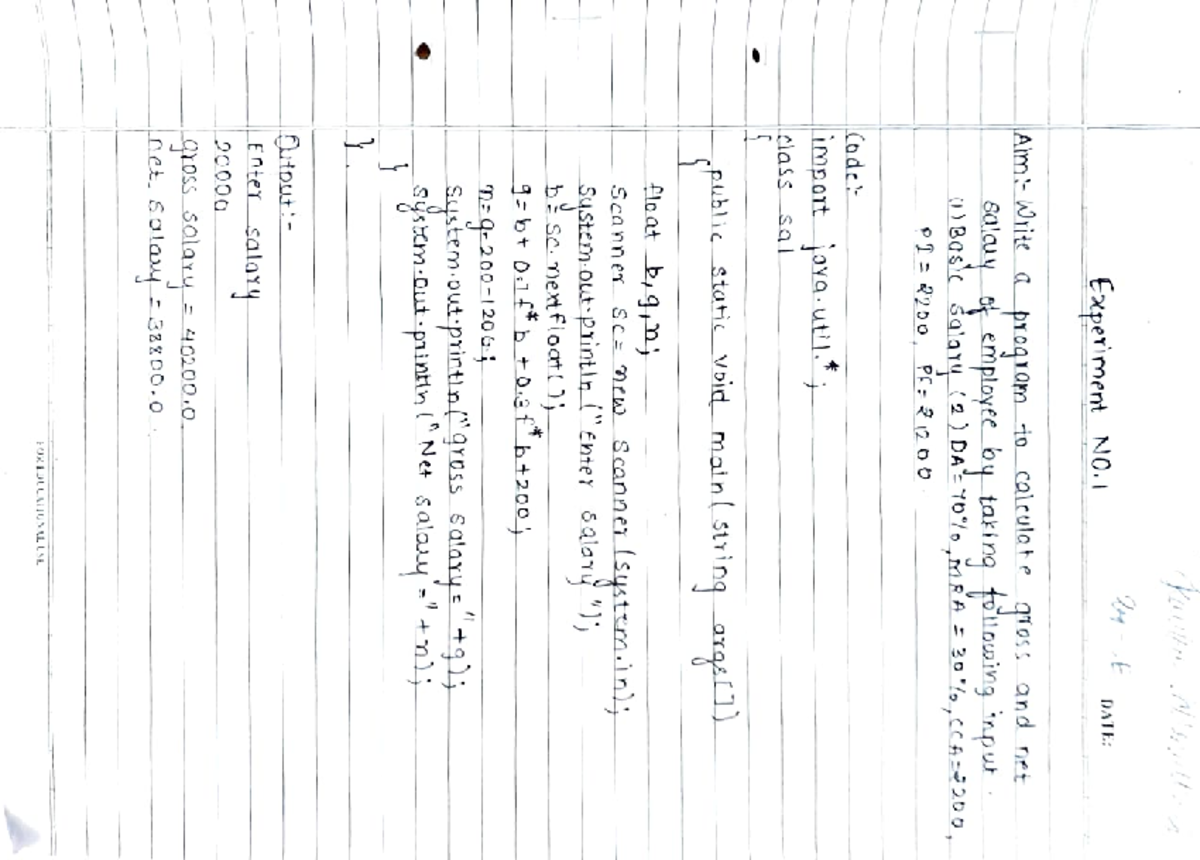 DATE:
Experiment NO.1
Aim:- Write a program to calculate gross and net
salary of employee by taking following input.
(1) Basic salary (2) DA = 70%, MRA = 30%, CCA = ₹200,
PT = ₹200, PF = ₹1200.
Code:-
import java.util.*;
class sal
{
public static void main(string args[])
{
float b,g,n;
Scanner sc = new Scanner (system.in);
system.out.println ("Enter salary");
b = sc.nextfloat();
g = b + 0.7f* b + 0.3f* b+200;
n = g-200-1200;
system.out.println("gross salary = "+g);
system.out.println("Net salary = "+n);
}
}
Output:-
Enter salary
20000
gross salary = 40200.0
net salary = 38800.0.
FOR EDUCATIONAL USE